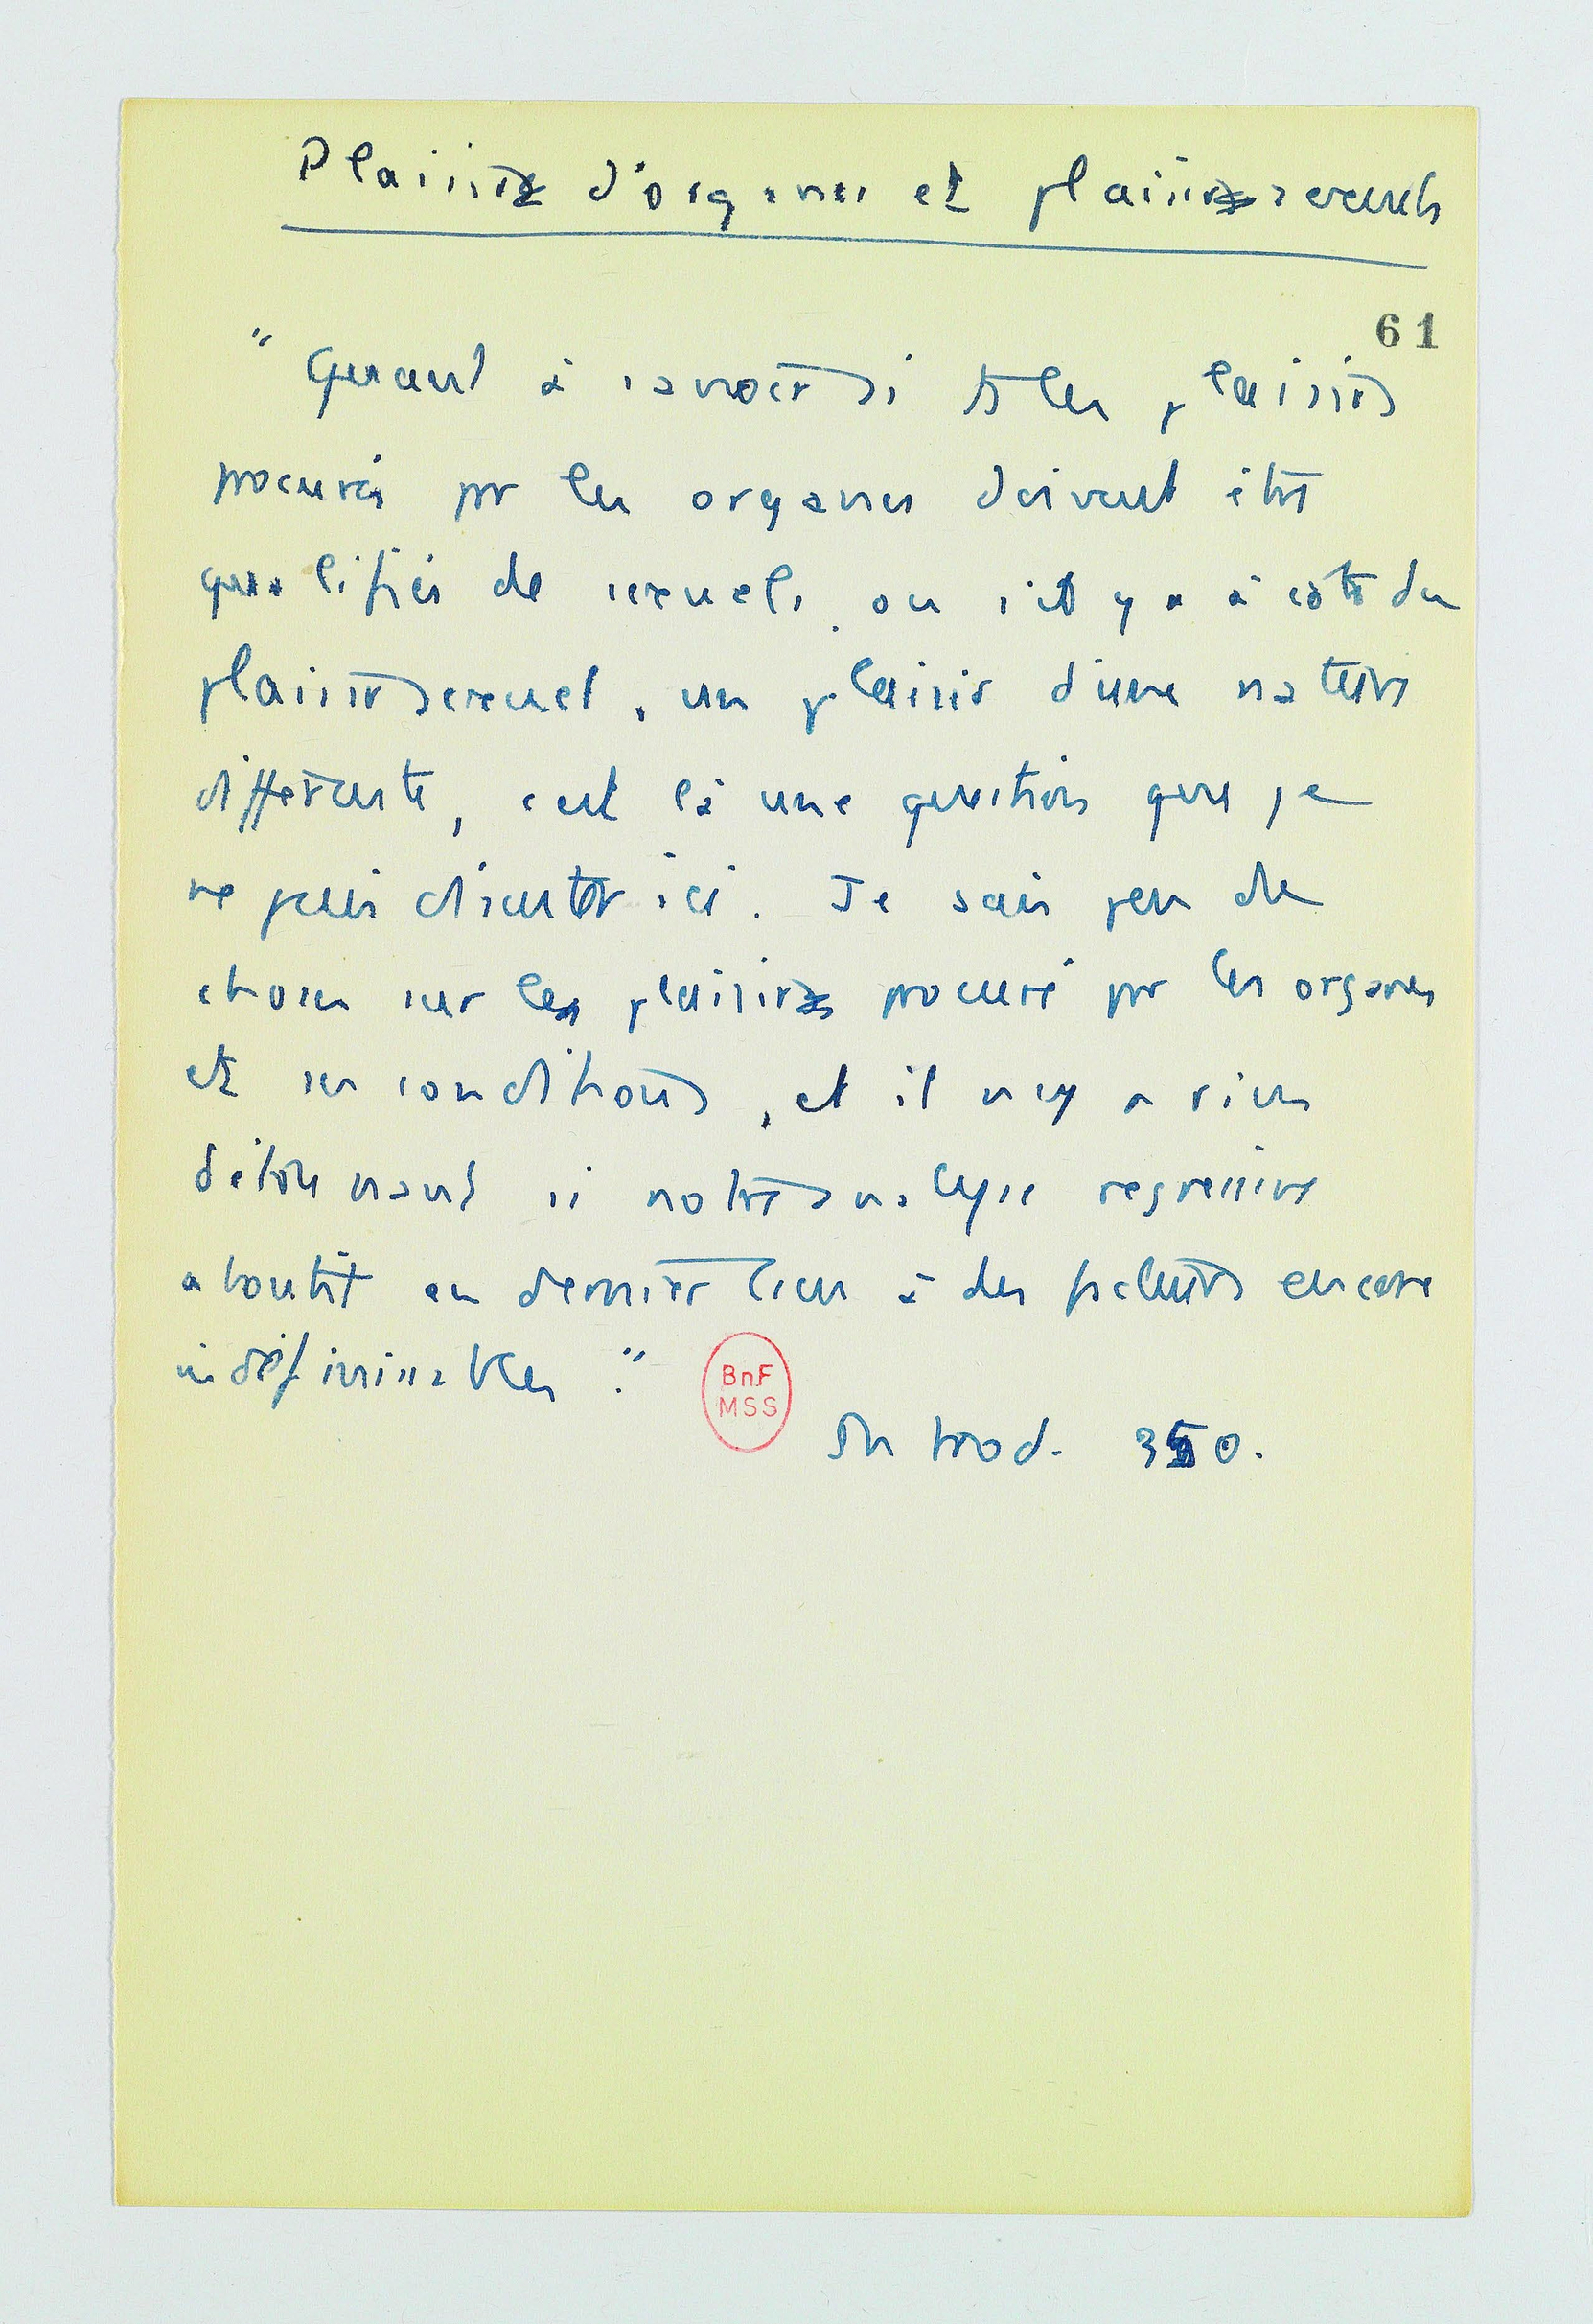 Plaisirs d'organes et plaisirs sexuels
61
" Quant à savoir si ts les plaisirs
procurés pr les organes doivent être
qualifiés de sexuels, ou s'il y a à côté du
plaisir sexuel, un plaisir d'une nature
différente, c'est là une question que je
ne puis discuter ici. Je sais peu de
choses sur les plaisirs procuré pr les organes
et ses conditions, et il n'y a rien
d'étonnant si notre analyse regressive
aboutit en dernier lieu à des facteurs encore
indéfinissables."
BnF
MSS
Introd. 350.